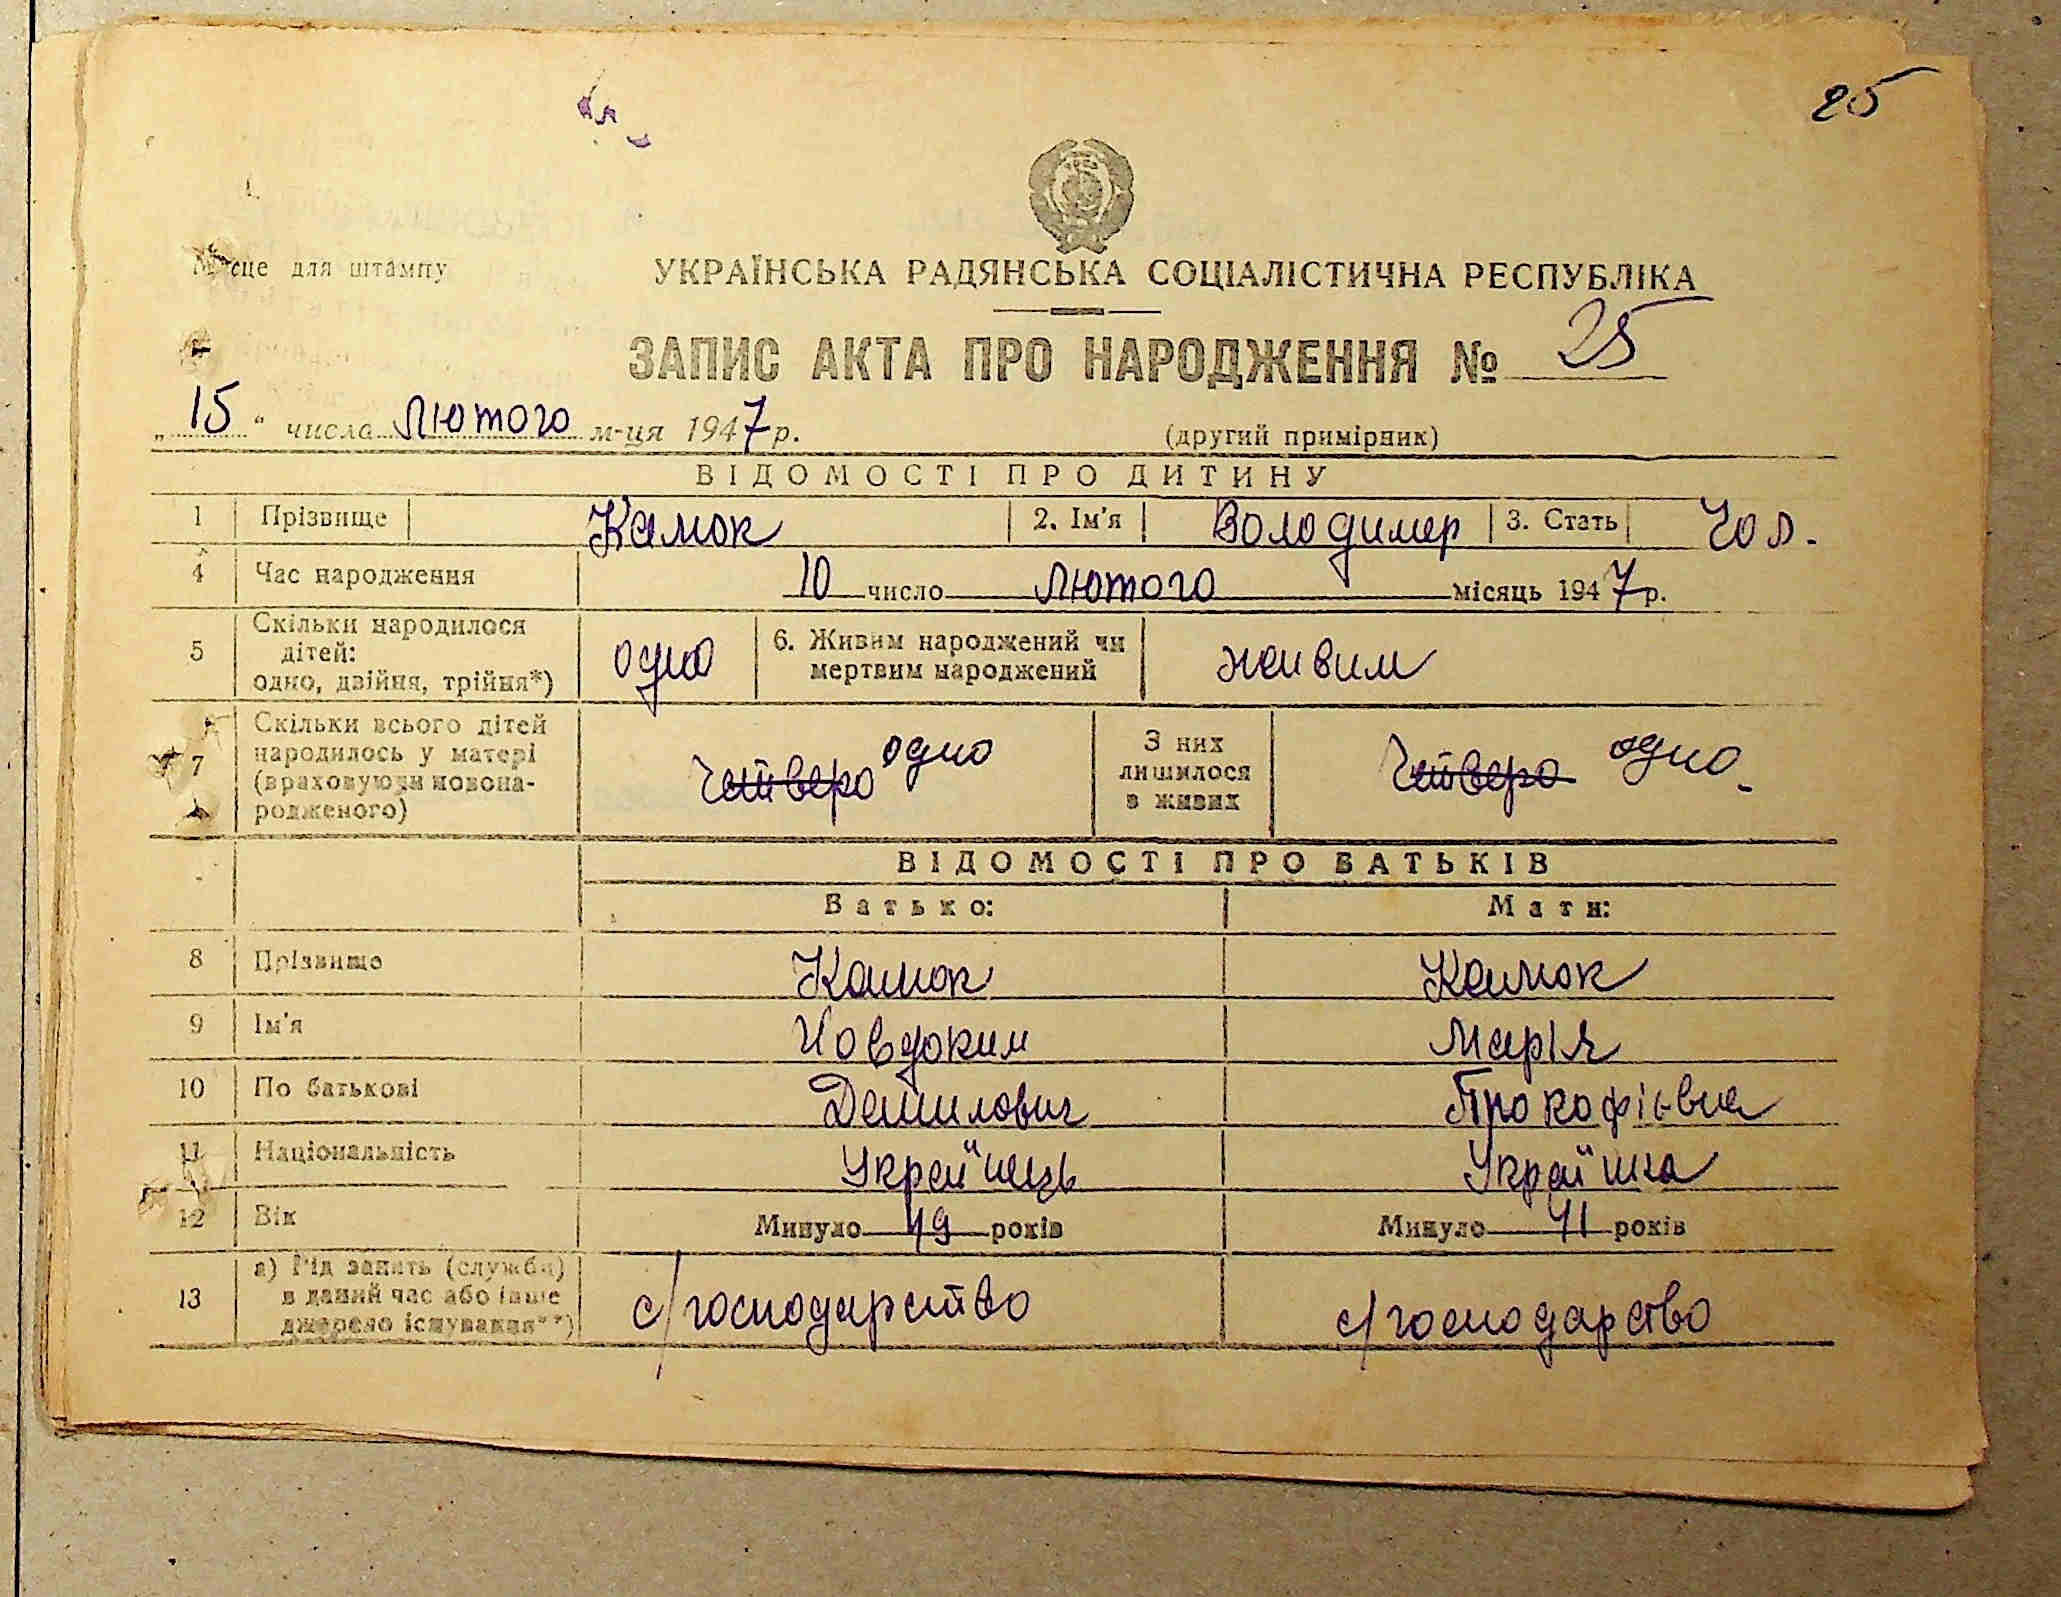 25
Місце для штампу
УКРАЇНСЬКА РАДЯНСЬКА СОЦІАЛІСТИЧНА РЕСПУБЛІКА
ЗАПИС АКТА ПРО НАРОДЖЕННЯ № 25
„15“ числа лютого м-ця 1947 р.
(другий примірник)
ВІДОМОСТІ ПРО ДИТИНУ
1 Прізвище Камок 2. Ім'я Володимер 3. Стать Чол.
4 Час народження 10 число лютого місяць 1947 р.
5 Скільки народилося дітей: одно, двійня, трійня*) одно 6. Живим народжений чи мертвим народжений живим
7 Скільки всього дітей народилось у матері (враховуючи новонародженого) Четверо одно З них лишилося в живих Четверо одно.
ВІДОМОСТІ ПРО БАТЬКІВ
Батько: Мати:
8 Прізвище Камок Камок
9 Ім'я Йовдоким Марія
10 По батькові Данилович Прокофієвна
11 Національність Українець Українка
12 Вік Минуло 49 років Минуло 41 років
13 а) Рід занять (служби) в даний час або інше джерело існування**) с/господарство с/господарство